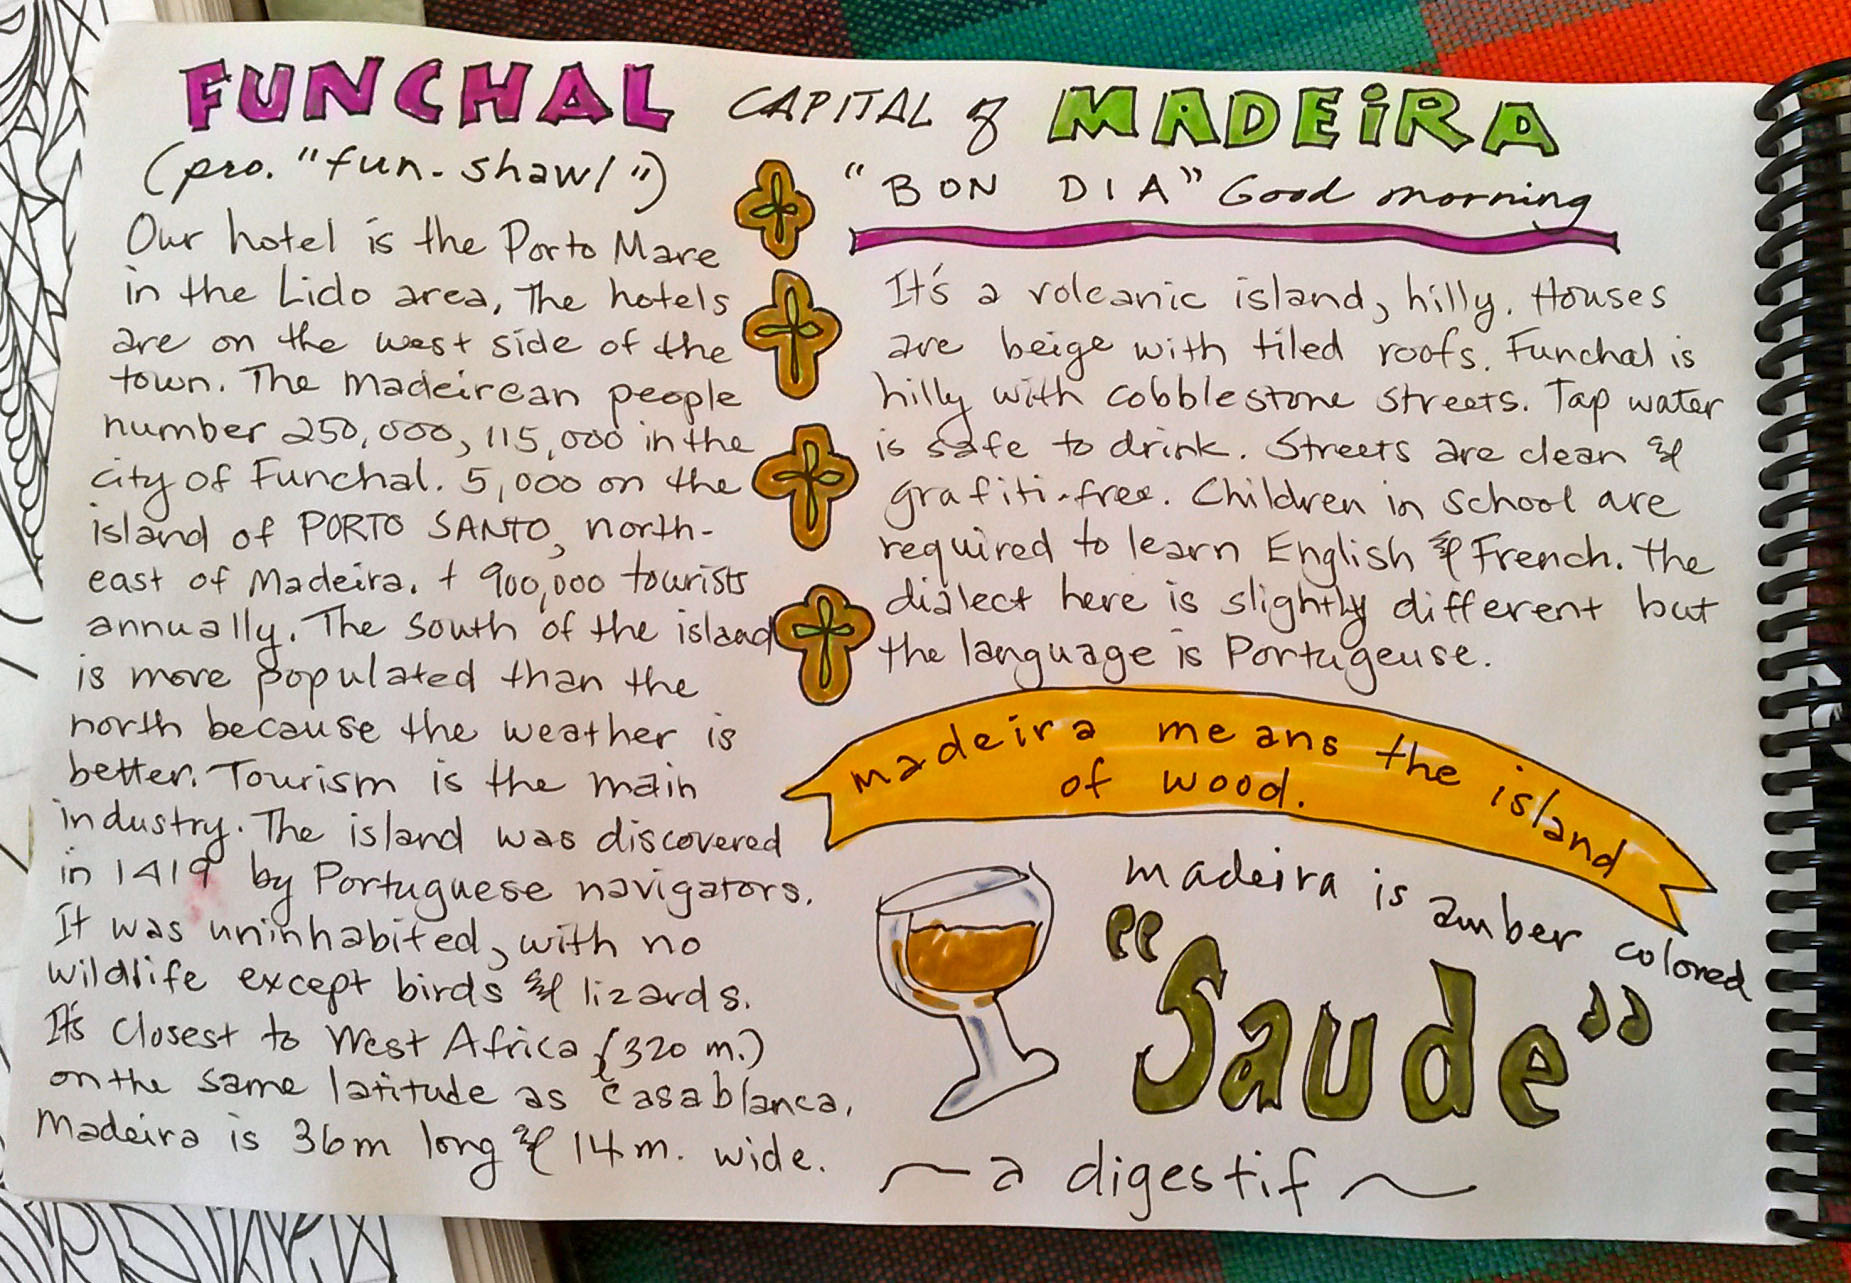 FUNCHAL CAPITAL of MADEiRA
(pro. "fun-shawl")
"BON DIA" Good morning
Our hotel is the Porto Mare
in the Lido area, The hotels
are on the west side of the
town. The madeirean people
number 250,000, 115,000 in the
city of Funchal. 5,000 on the
island of PORTO SANTO, north-
east of Madeira. + 900,000 tourists
annually. The south of the island
is more populated than the
north because the weather is
better. Tourism is the main
industry. The island was discovered
in 1419 by Portuguese navigators.
It was uninhabited, with no
wildlife except birds & lizards.
It's closest to West Africa (320 m.)
on the same latitude as Casablanca.
Madeira is 36m long & 14m. wide.
It's a volcanic island, hilly. Houses
are beige with tiled roofs. Funchal is
hilly with cobblestone streets. Tap water
is safe to drink. Streets are clean &
grafiti-free. Children in school are
required to learn English & French. The
dialect here is slightly different but
the language is Portugeuse.
madeira means the island
of wood.
madeira is amber colored
"Saude"
~ a digestif ~